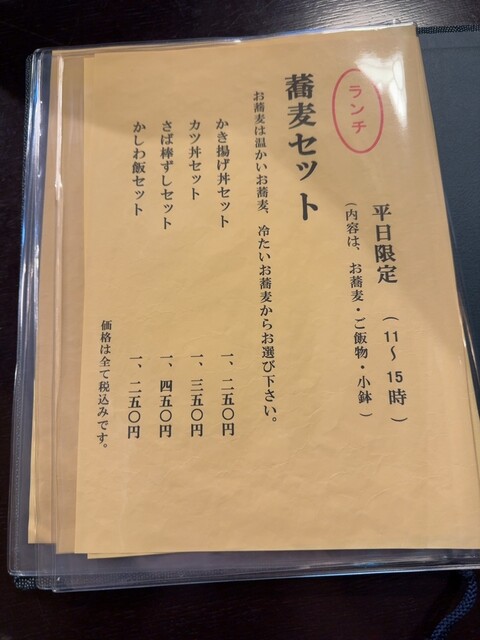 ランチ
平日限定 （11～15時）
（内容は、お蕎麦・ご飯物・小鉢）
蕎麦セット
お蕎麦は温かいお蕎麦、冷たいお蕎麦からお選び下さい。
かき揚げ丼セット 一、二五〇円
カツ丼セット 一、三五〇円
さば棒ずしセット 一、四五〇円
かしわ飯セット 一、二五〇円
価格は全て税込みです。